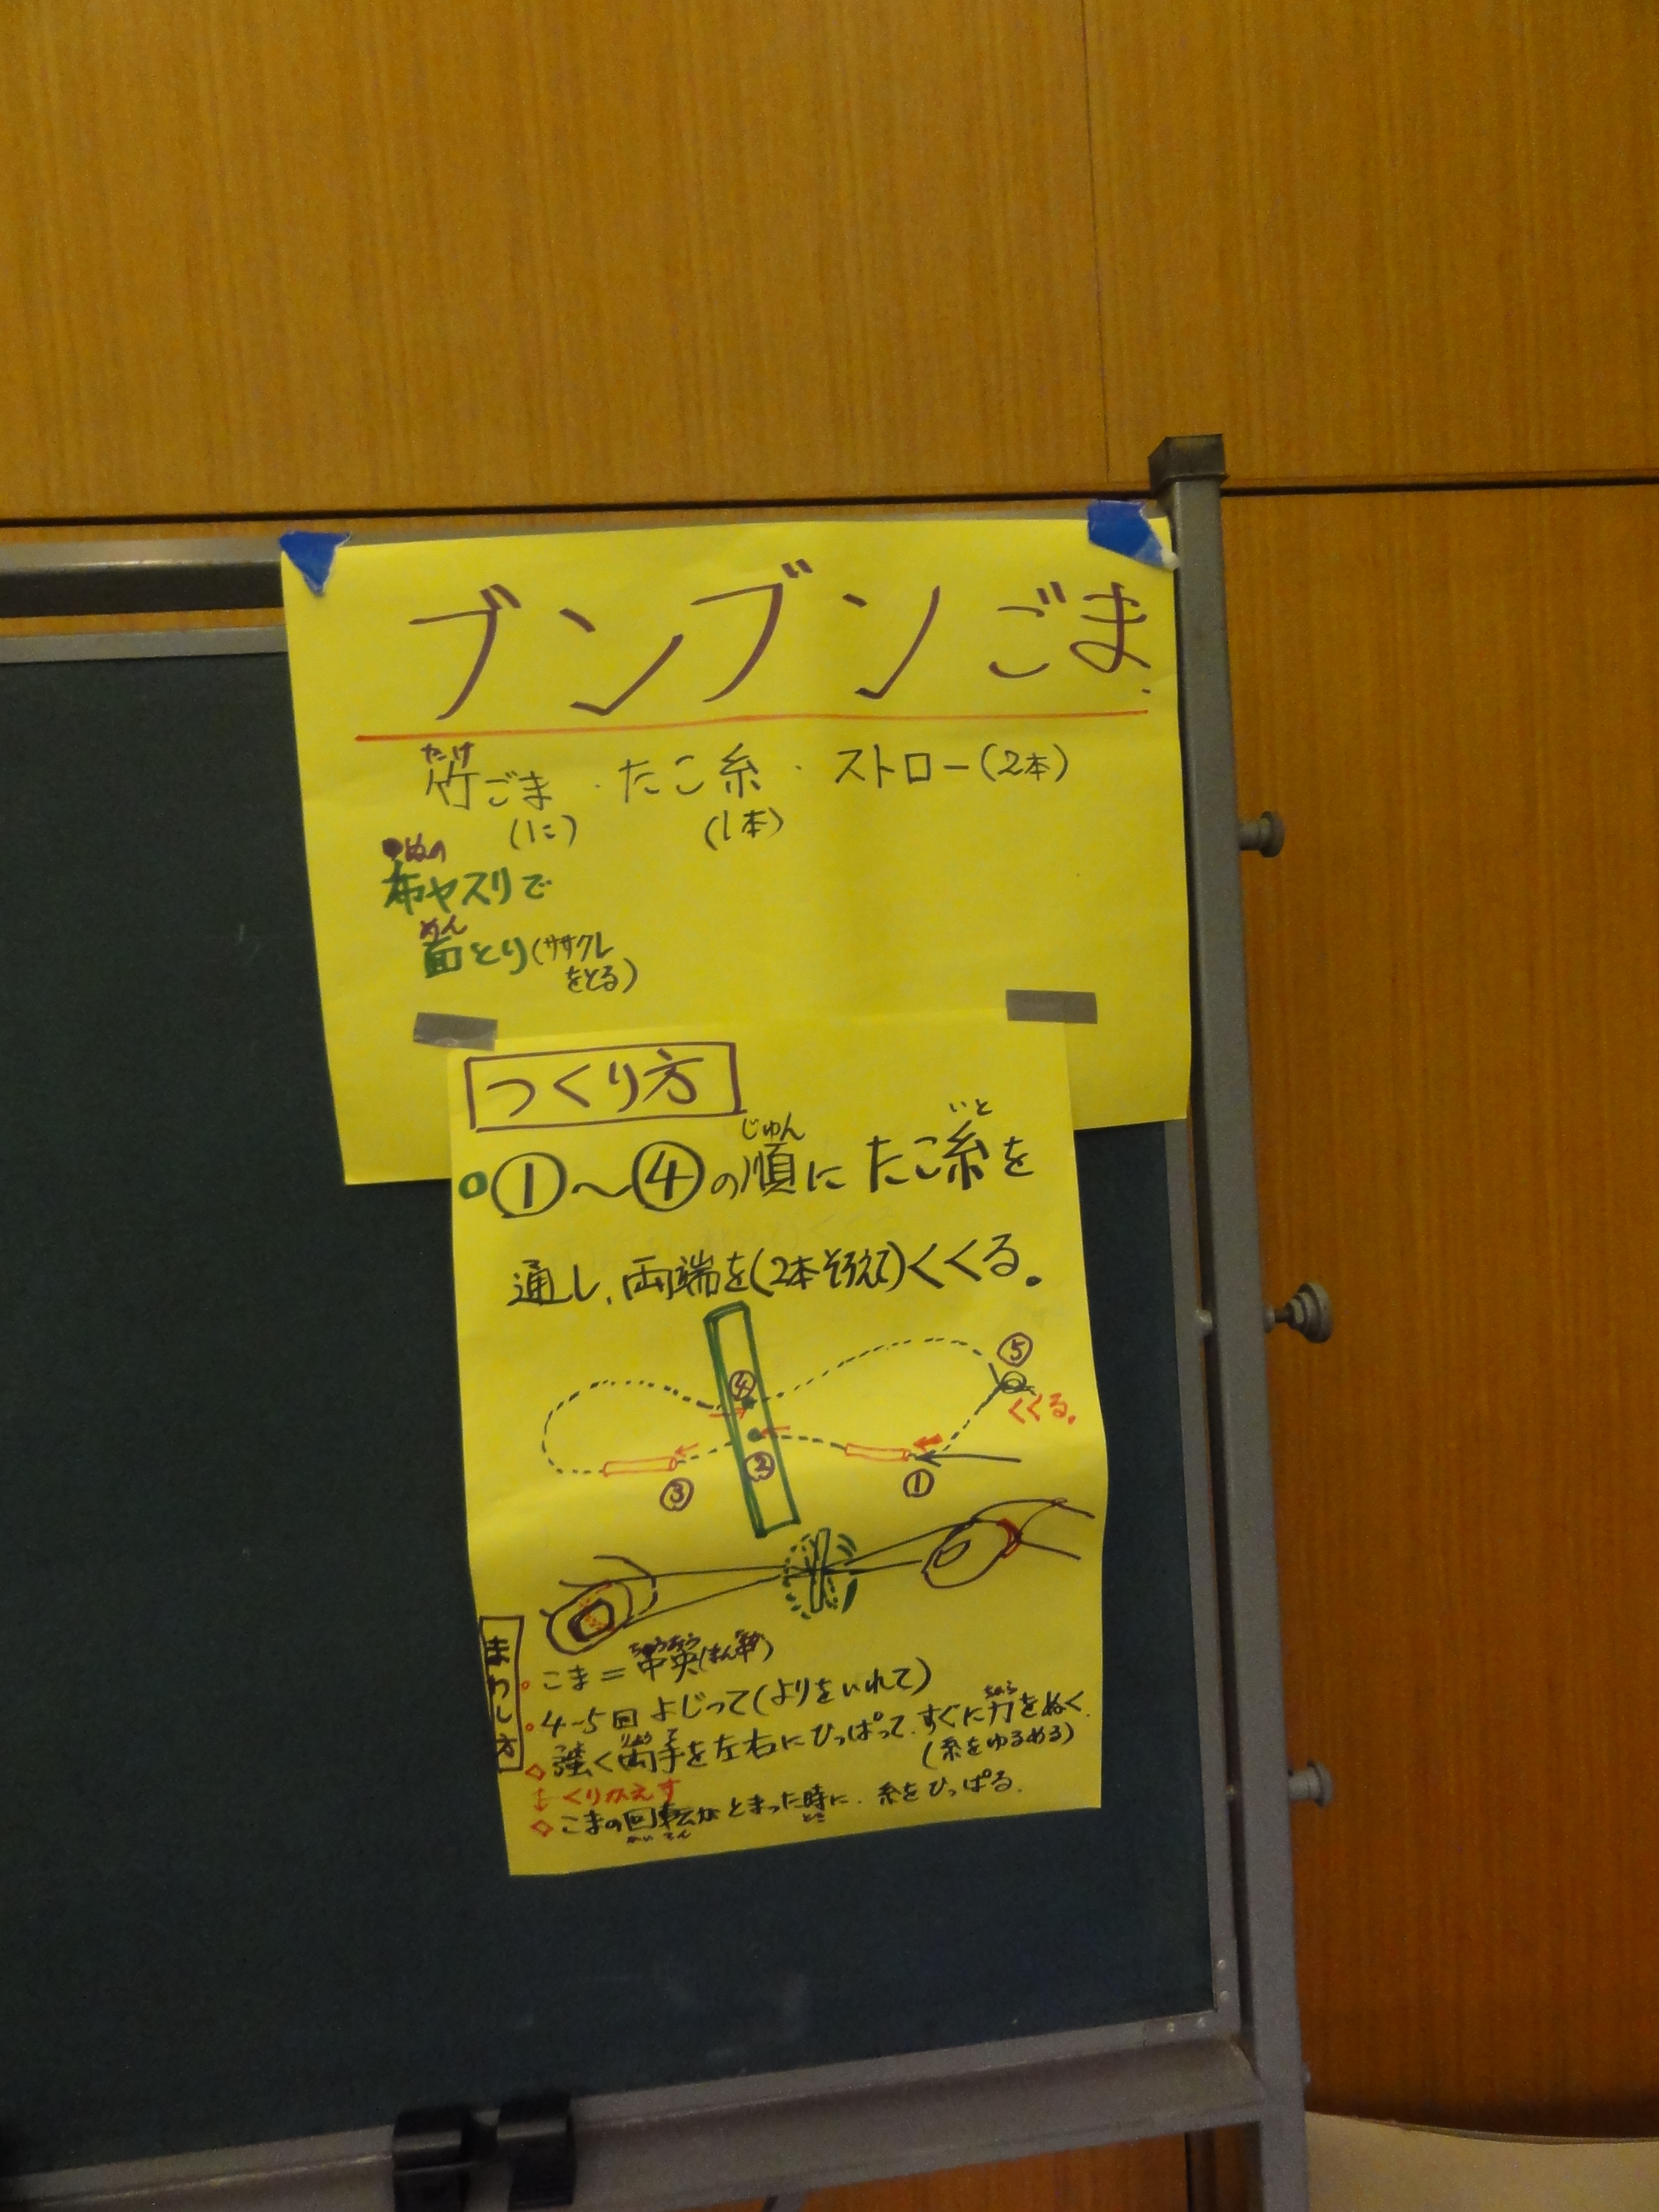 ブンブンごま
たけ
竹ごま・たこ糸・ストロー(2本)
(1こ) (1本)
ぬの
布ヤスリで
めん
面とり(ササクレ
をとる)
つくり方
じゅん いと
①～④の順にたこ糸を
通し、両端を(2本そろえて)くくる。
⑤
④
くくる。
②
③ ①
まわし方
こま=
4~5回よじって(よりをいれて)
りょう て ちから
強く両手を左右にひっぱって、すぐに力をぬく.
(糸をゆるめる)
くりかえす
こまの回転がとまった時に、糸をひっぱる.
かいてん とき